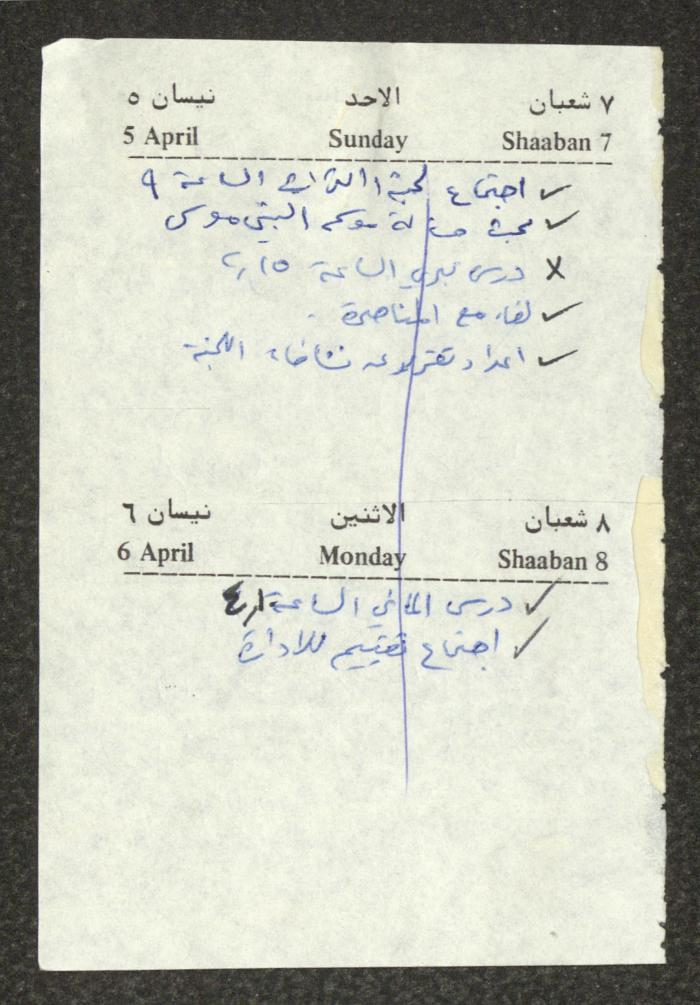 ٧ شعبان الاحد نيسان ٥
Shaaban 7 Sunday 5 April
اجتماع لجنة التراث الساعة ٩
بحث مسألة موسم النبي موسى
درس عبري الساعة ٢,١٥
لقاء مع المناصرة
اعداد تقرير عن نشاطات اللجنة
٨ شعبان الاثنين نيسان ٦
Shaaban 8 Monday 6 April
درس الماني الساعة
اجتماع تقييم للادارة